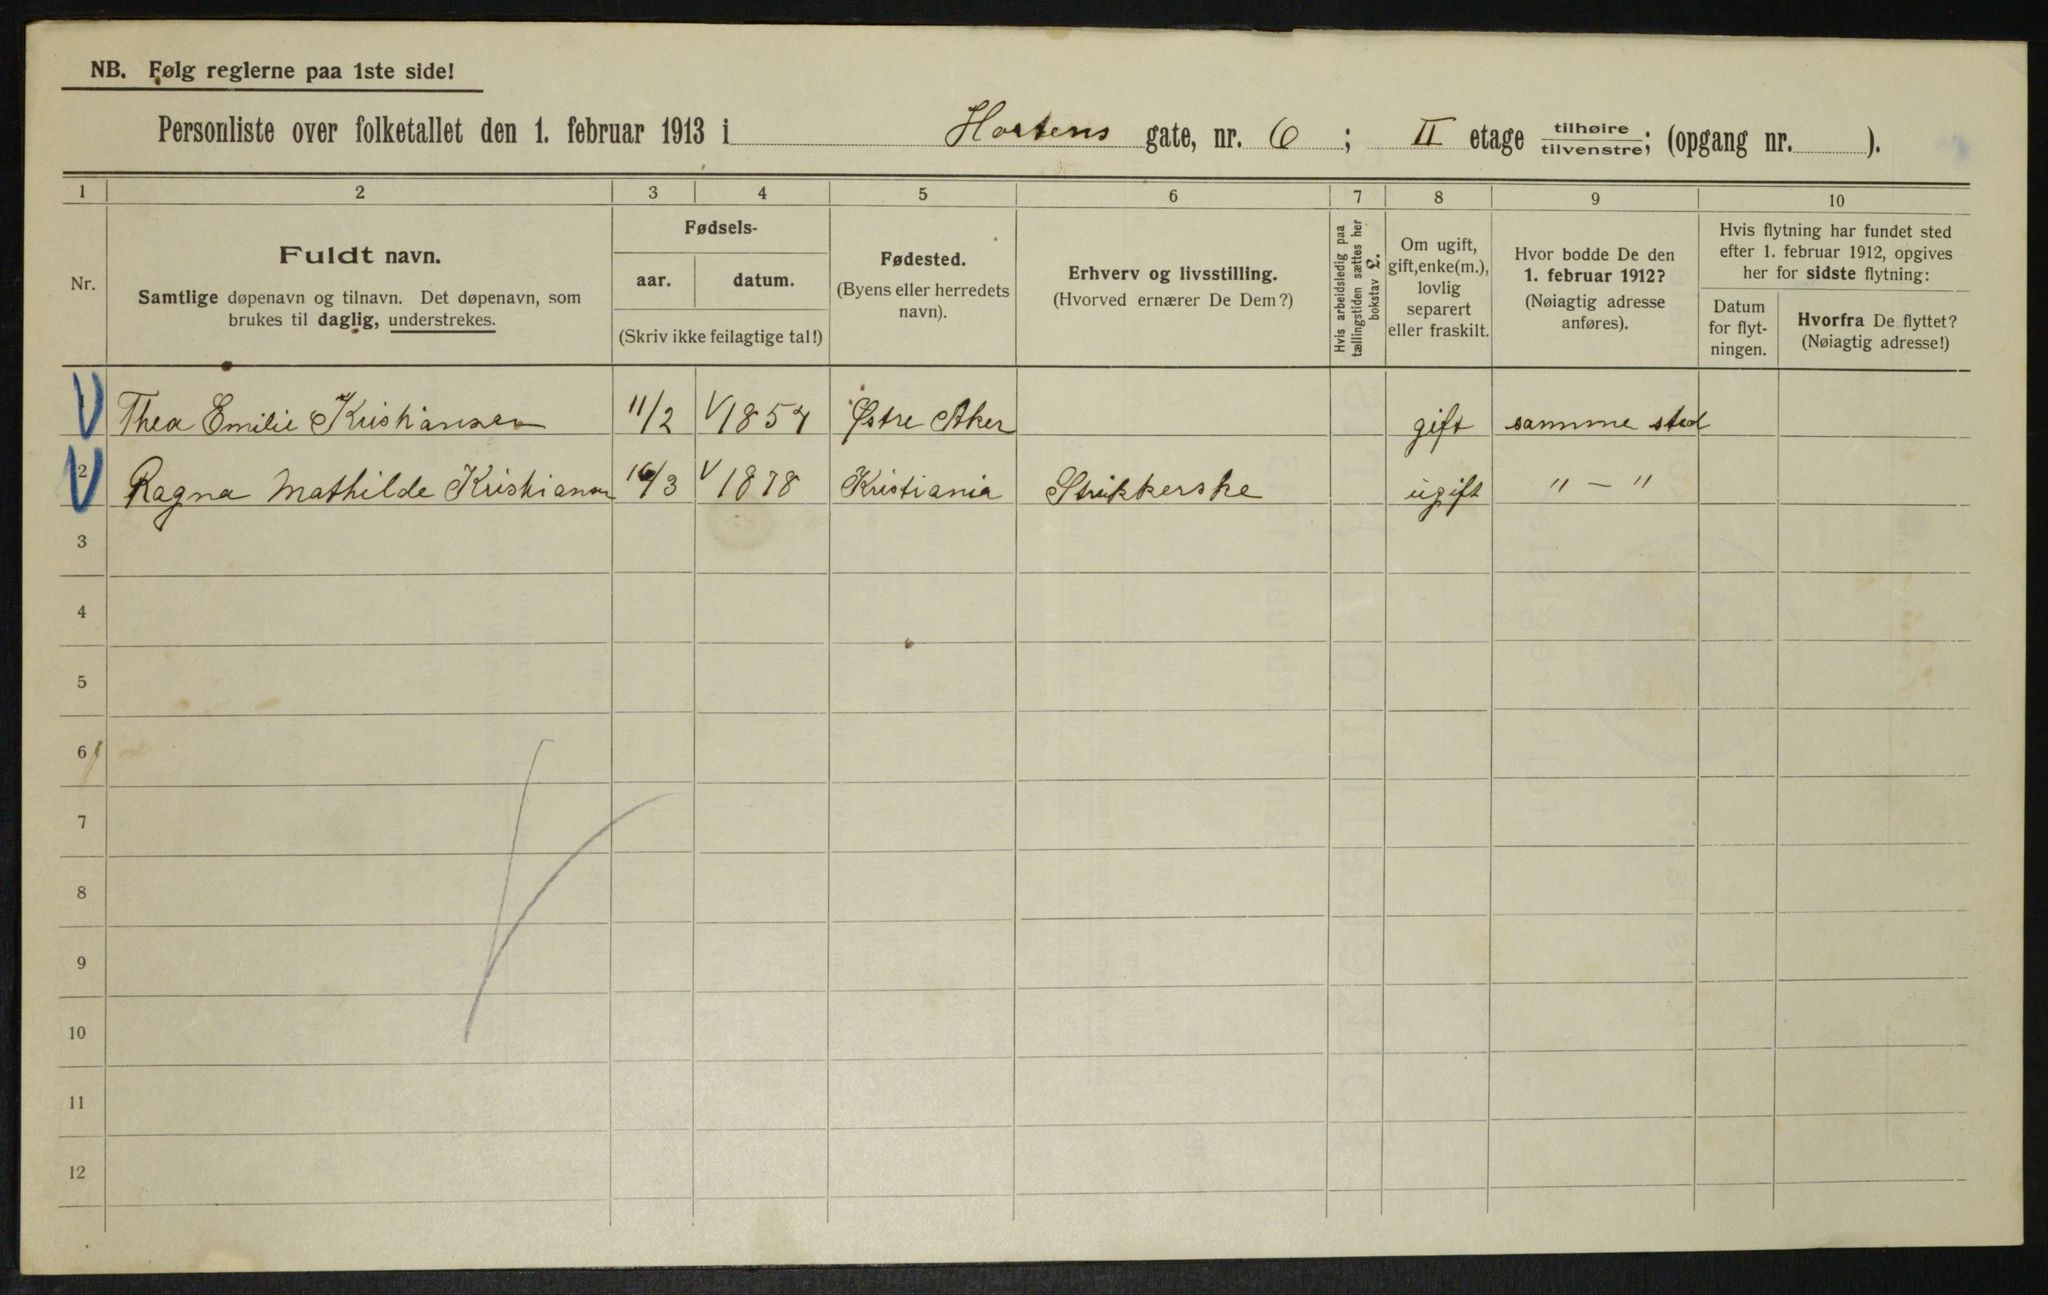 NB. Følg reglerne paa 1ste side!
Personliste over folketallet den 1. februar 1913 i Hortens gate, nr. 6 ; II etage tilhøire / tilvenstre; (opgang nr. ).
1 2 3 4 5 6 7 8 9 10
Nr.
Fuldt navn.
Samtlige døpenavn og tilnavn. Det døpenavn, som
brukes til daglig, understrekes.
Fødsels-
aar. datum.
(Skriv ikke feilagtige tal!)
Fødested.
(Byens eller herredets
navn).
Erhverv og livsstilling.
(Hvorved ernærer De Dem?)
Hvis arbeidsledig paa
tællingstiden sættes her
bokstav L.
Om ugift,
gift, enke(m.),
lovlig
separert
eller fraskilt.
Hvor bodde De den
1. februar 1912?
(Nøiagtig adresse
anføres).
Hvis flytning har fundet sted
efter 1. februar 1912, opgives
her for sidste flytning:
Datum
for flyt-
ningen.
Hvorfra De flyttet?
(Nøiagtig adresse!)
1 Thea Emilie Kristiansen 11/2 1857 Østre Aker gift samme sted
2 Ragna Mathilde Kristiansen /3 1878 Kristiania Strikkerske ugift " – "
3
4
5
6
7
8
9
10
11
12